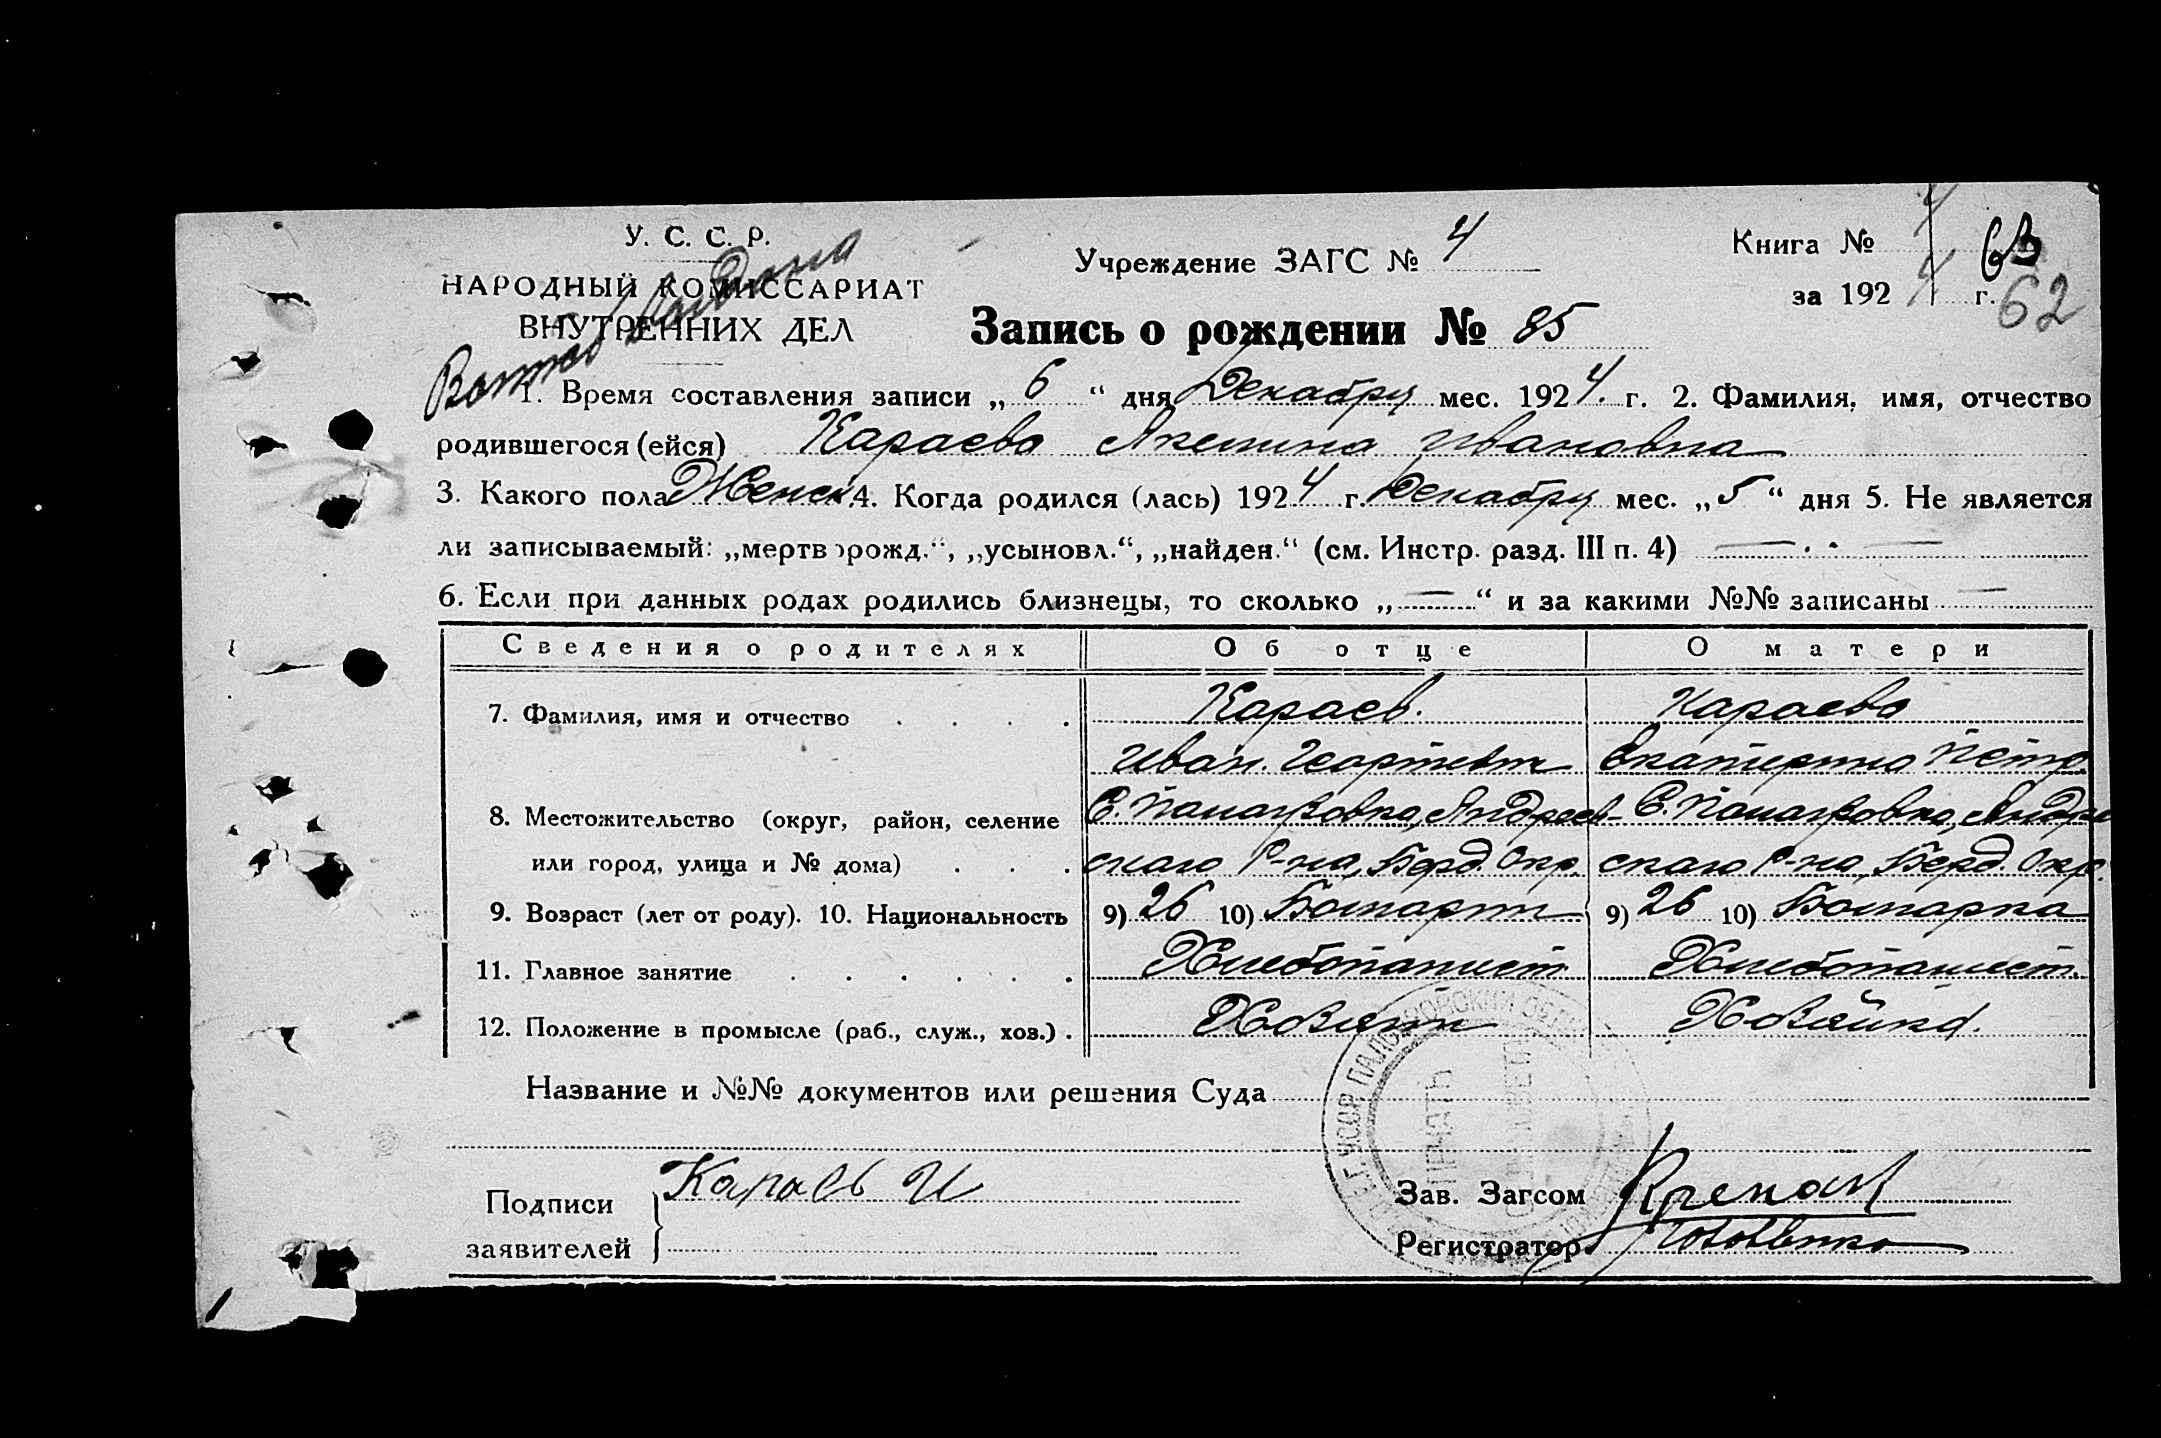 У. С. С. Р.
НАРОДНЫЙ КОМИССАРИАТ
ВНУТРЕННИХ ДЕЛ
Учреждение ЗАГС № 4
Книга № 4 63
за 1924 г. 62
Запись о рождении № 85
1. Время составления записи „ 6 “ дня Декабря мес. 1924. г. 2. Фамилия, имя, отчество
родившегося (ейся) Караева Ивановна
3. Какого пола Женск 4. Когда родился (лась) 1924 г. Декабря мес. „ 5 “ дня 5. Не является
ли записываемый: „мертворожд.“, „усыновл.“, „найден.“ (см. Инстр. разд. III п. 4) —
6. Если при данных родах родились близнецы, то сколько „ — “ и за какими №№ записаны —
Сведения о родителях Об отце О матери
7. Фамилия, имя и отчество . . . . Караев. Караева
Иван Георгиевич Екатерина Петр
8. Местожительство (округ, район, селение С. Андреев- С. Андре
или город, улица и № дома) . . . ского Р-на, Берд. Окр. ского Р-на, Берд. Окр.
9. Возраст (лет от роду). 10. Национальность 9) 26 10) Болгарин 9) 26 10) Болгарка
11. Главное занятие . . . . . . Хлебопашест. Хлебопашест.
12. Положение в промысле (раб., служ., хоз.) . Хозяин Хозяйка.
Название и №№ документов или решения Суда
Подписи заявителей Караев И
Зав. Загсом
Регистратор